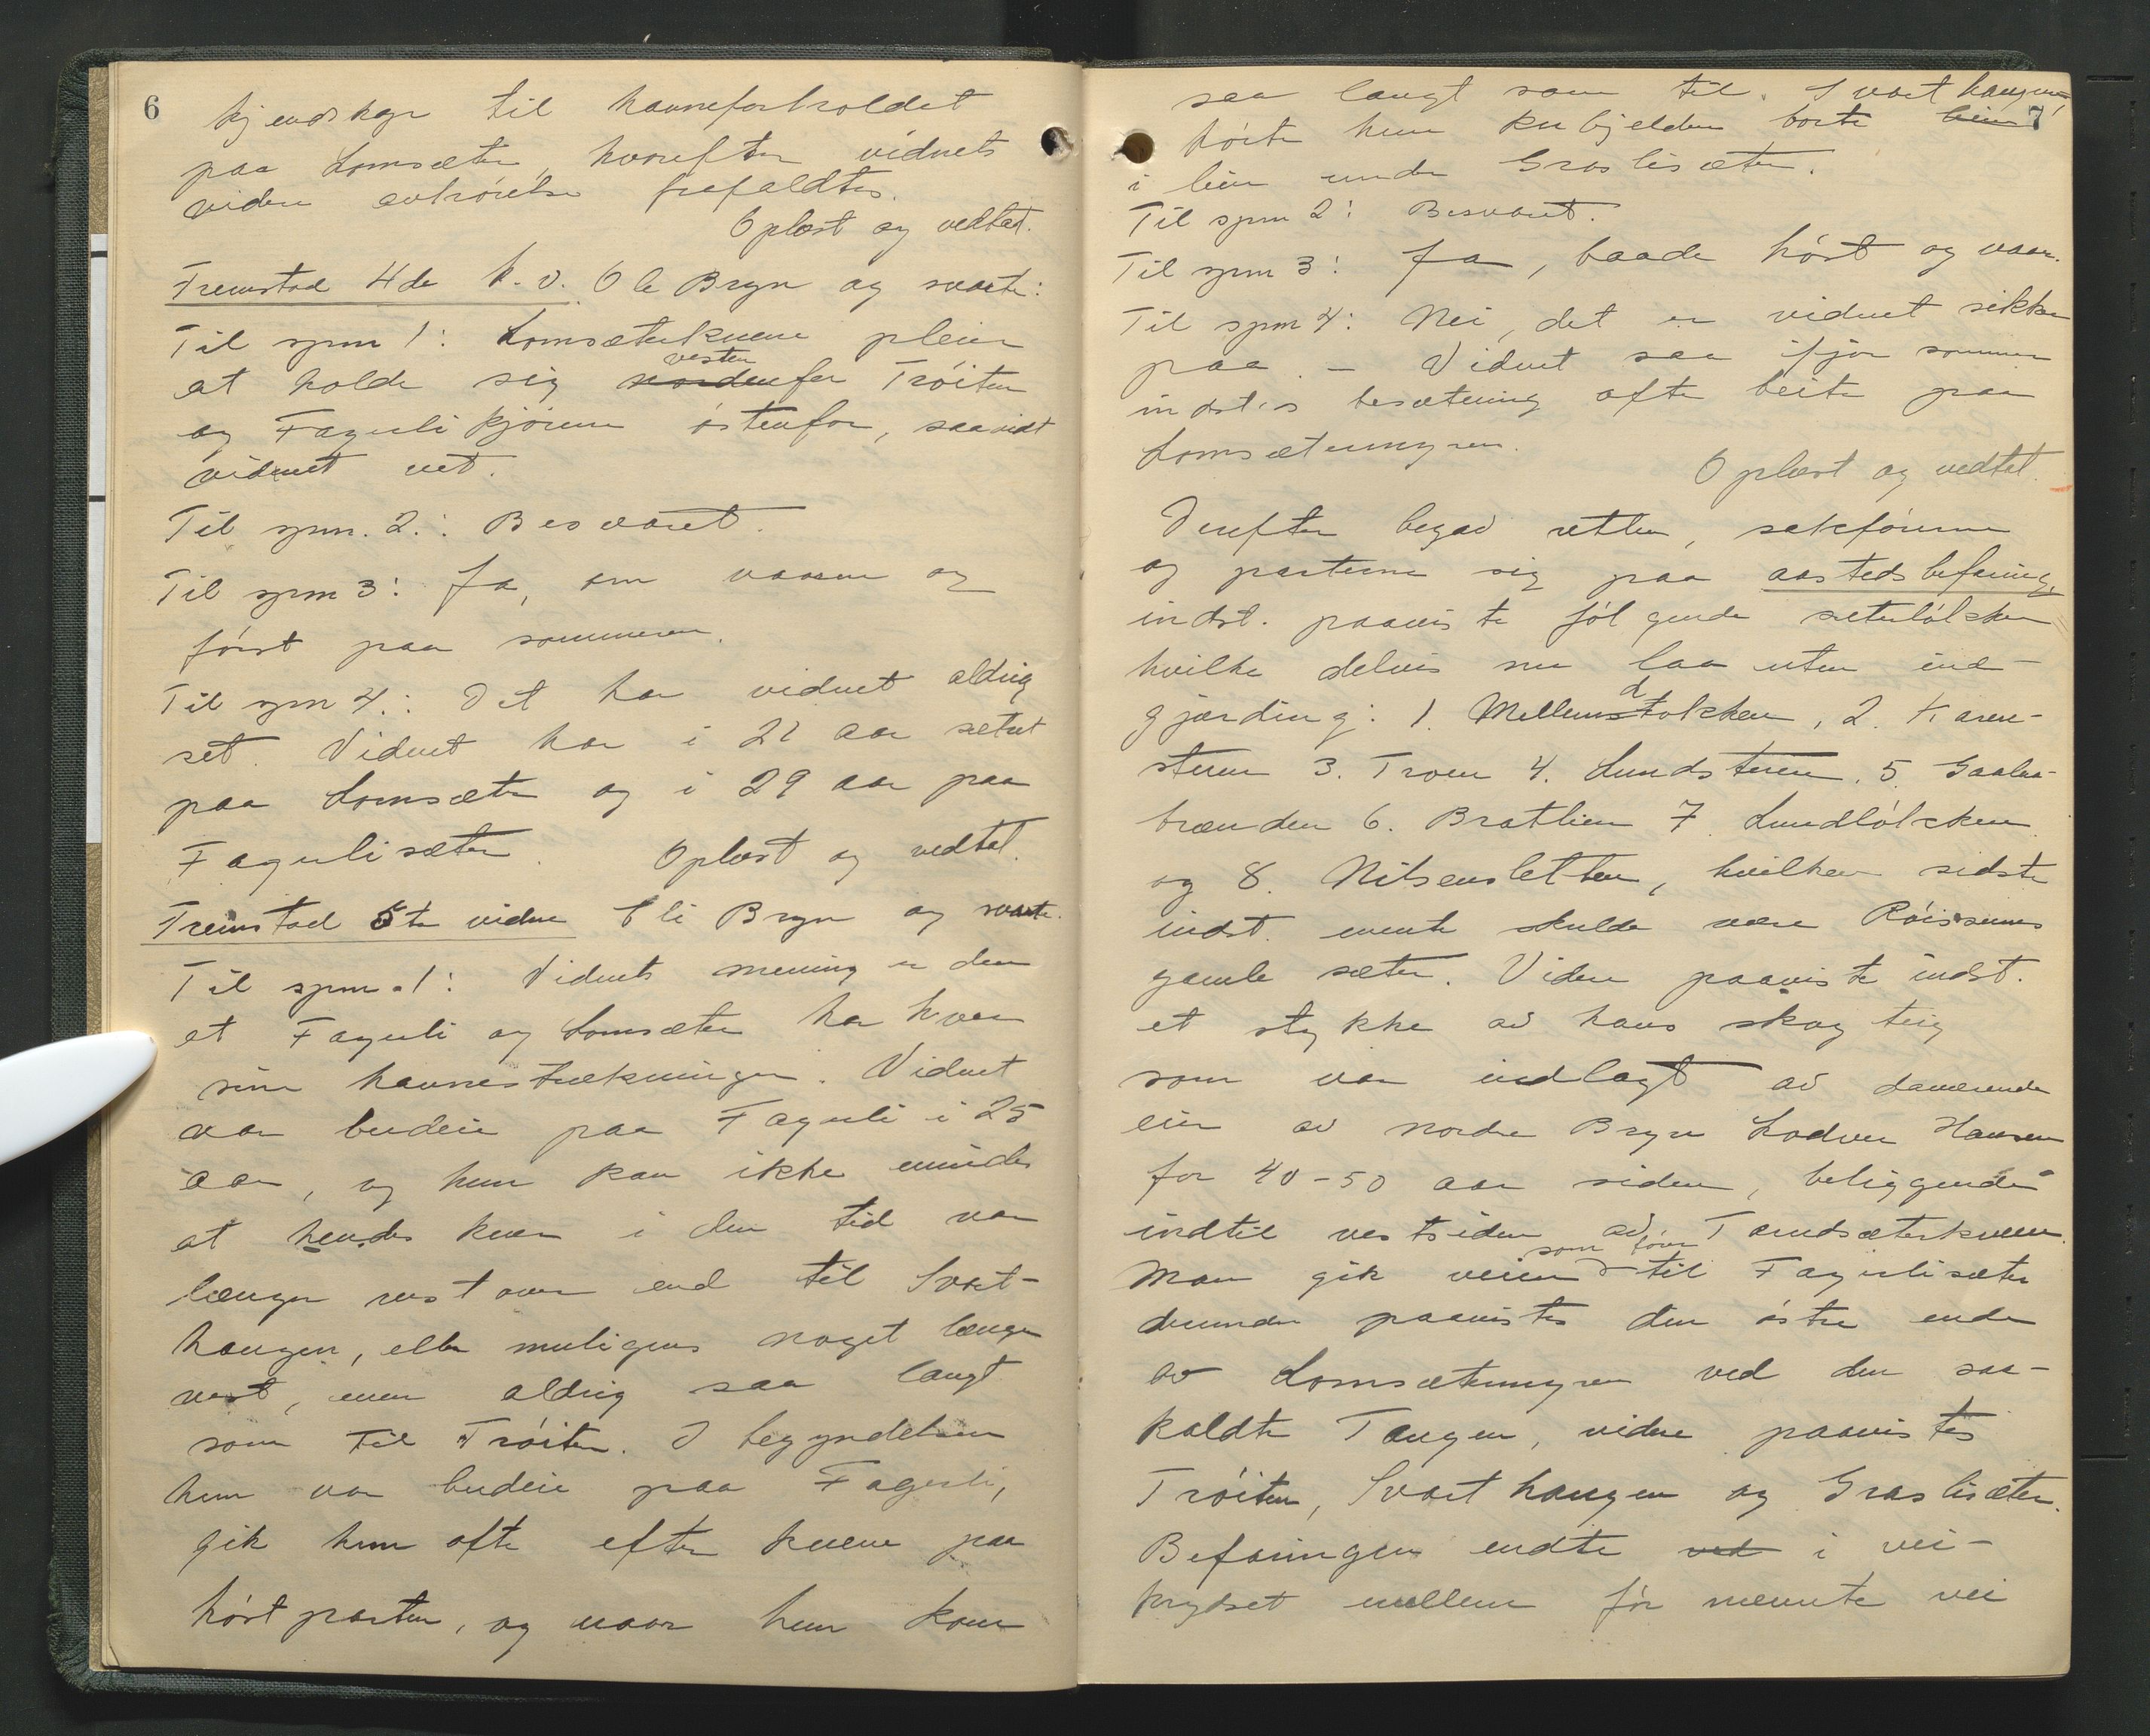 6
kjendskap til havneforholdet
paa Lomsæter, hvorefter vidnets
videre avhørelse frafaldtes.
Oplæst og vedtat.
Fremstod 4de h.v. Ole Bryn og svarte:
Til spm 1: Lomsæterkuene pleier
at holde sig nordenfor vesten Trøiten
og Fagerlikjørne østenfor, saavidt
vidnet vet.
Til spm. 2.: Besvaret.
Til spm 3: Ja, om vaaren og
først paa sommeren.
Til spm 4.: Det har vidnet aldrig
set. Vidnet har i 21 aar sætret
paa Lomsæter og i 29 aar paa
Fagerlisæter. Oplæst og vedtat.
Fremstod 5te vidne Eli Bryn og svarte.
Til spm. 1: Vidnets mening er den
at Fagerli og Lomsæter har hver
sine havnestrækninger. Vidnet
var budeie paa Fagerli i 25
aar, og hun kan ikke mindes
at hendes kuer i den tid var
længer vestover end til Svart-
haugen, eller muligens noget længer
vest, men aldrig saa langt
som til Trøiten. I begyndelsen
hun var budeie paa Fagerli,
gik hun ofte efter kuene paa
høstparten, og naar hun kom
7
saa langt som til Svarthaugen,
hørte hun kubjelden borte
i lien under Graslisæter.
Til spm 2: Besvaret.
Til spm 3: Ja, baade høst og vaar.
Til spm 4: Nei, det er vidnet sikker
paa. - Vidnet saa ifjor sommer
indst.s besætning ofte beite paa
Lomsætermyren.
Oplæst og vedtat.
Derefter begav retten, sakførerne
og parterne sig paa aastedsbefaring,
indst. paaviste følgende sæterløkker
hvilke delvis nu laa uten ind-
gjærding: 1. Mellemstolkken, 2. Karen-
steen 3. Troen 4. Lundsteen. 5. Gaalaa-
brænden 6. Bratlien 7. Lundløkken
og 8. Nilsensletten, hvilken sidste
indst. mente skulde være Røissums
gamle sæter. Videre paaviste indst.
et stykke av hans skogteig
som var indlagt av daværende
eier av nordre Bryn Lodver Hansen
for 40-50 aar siden, beliggende
indtil vestsiden av Tandsæterkveen.
Man gik veien som fører til Fagerlisæter
derunder paavistes den østre ende
av Lomsætermyren ved den saa-
kaldte Tangen, videre paavistes
Trøiten, Svarthaugen og Graslisæter.
Befaringen endte ved i vei-
krydset mellem før nævnte vei